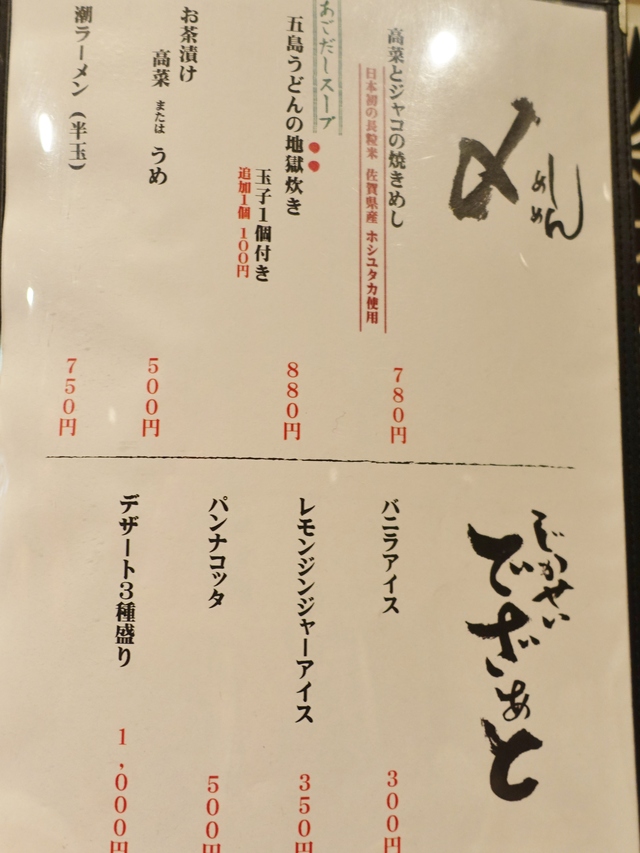 〆
めしめん
高菜とジャコの焼きめし
日本初の長粒米 佐賀県産 ホシユタカ使用
780円
あごだしスープ
五島うどんの地獄炊き
玉子1個付き
追加1個 100円
880円
お茶漬け
高菜 または うめ
500円
潮ラーメン(半玉)
750円
じかせい
でざぁと
バニラアイス
300円
レモンジンジャーアイス
350円
パンナコッタ
500円
デザート3種盛り
1,000円